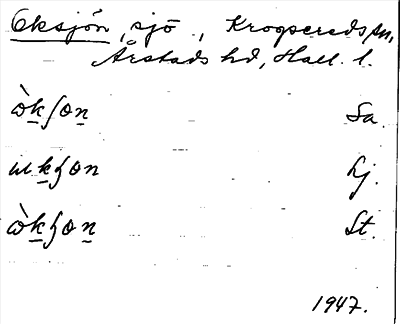 Oksjön, sjö, Krogseredssn,
Årstads hd, Hall. l.
ὼkʃon Sa.
ɯkʃon Lj.
ὼkʃon St.
1947.